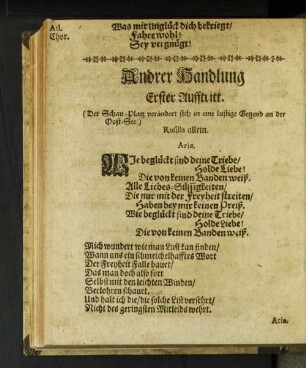 Was mit Unglück dich bekrieget/
Ad. Fahre wohl/
Chor. Sey vergnügt!
Andrer Handlung
Erster Aufftritt.
(Der Schau-Platz verändert sich in eine lustige Gegend an der
Oost-See.)
Rusilla allein.
Aria.
WJe beglückt sind deine Triebe/
Holde Liebe!
Die von keinen Banden weiß.
Alle Liebes-Süssigkeiten/
Die nur mit der Freyheit streiten/
Haben bey mir keinen Preiß.
Wie beglückt sind deine Triebe/
Holde Liebe!
Die von keinen Banden weiß.
Mich wundert wie man Lust kan finden/
Wann uns ein schmeichelhafftes Wort
Der Freyheit Falle bauet/
Das man doch also fort
Selbst mit den leichten Winden/
Verlohren schauet.
Und halt ich die/ die solche List versehrt/
Nicht des geringsten Mitleids wehrt.
Aria.